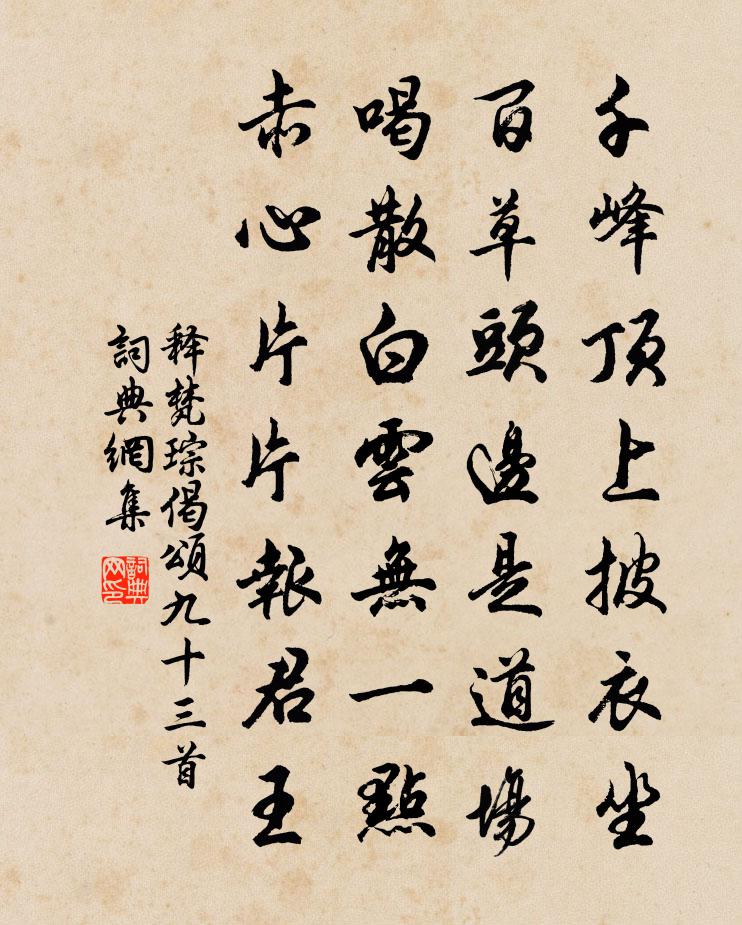 千峰頂上披衣坐
百草頭邊是道場
喝散白雲無一點
赤心片片報君王
释梵琮偈頌九十三首
詞典網集
詞典网印